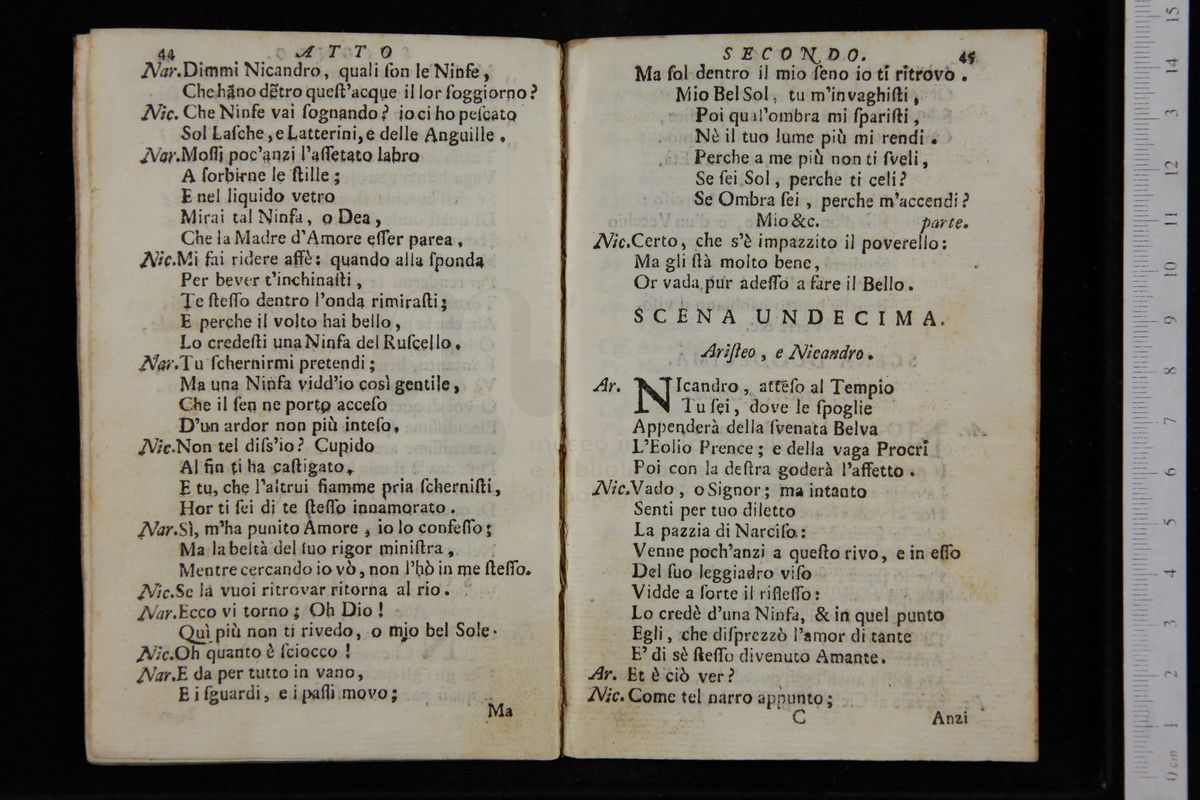 44 ATTO
Nar.Dimmi Nicandro, quali ſon le Ninfe,
Che hãno dẽtro queſt'acque il lor ſoggiorno?
Nic. Che Ninfe vai ſognando? io ci ho peſcato
Sol Laſche, e Latterini, e delle Anguille.
Nar.Moſſi poc'anzi l'aſſetato labro
A ſorbirne le ſtille;
E nel liquido vetro
Mirai tal Ninfa, o Dea,
Che la Madre d'Amore eſſer parea.
Nic.Mi fai ridere affè: quando alla ſponda
Per bever t'inchinaſti,
Te ſteſſo dentro l'onda rimiraſti;
E perche il volto hai bello,
Lo credeſti una Ninfa del Ruſcello.
Nar.Tu ſchernirmi pretendi;
Ma una Ninfa vidd'io così gentile,
Che il ſen ne porto acceſo
D'un ardor non più inteſo.
Nic.Non tel diſs'io? Cupido
Al fin ti ha caſtigato.
E tu, che l'altrui fiamme pria ſcherniſti,
Hor ti ſei di te ſteſſo innamorato.
Nar.Sì, m'ha punito Amore, io lo confeſſo;
Ma la beltà del ſuo rigor miniſtra,
Mentre cercando io vò, non l'hò in me ſteſſo.
Nic.Se la vuoi ritrovar ritorna al rio.
Nar.Ecco vi torno; Oh Dio!
Quì più non ti rivedo, o mio bel Sole.
Nic.Oh quanto è ſciocco!
Nar.E da per tutto in vano,
E i ſguardi, e i paſſi movo;
Ma
SECONDO. 45
Ma ſol dentro il mio ſeno io ti ritrovo.
Mio Bel Sol, tu m'invaghiſti,
Poi qual'ombra mi ſpariſti,
Nè il tuo lume più mi rendi.
Perche a me più non ti ſveli,
Se ſei Sol, perche ti celi?
Se Ombra ſei, perche m'accendi?
Mio &c. parte.
Nic.Certo, che s'è impazzito il poverello:
Ma gli ſtà molto bene,
Or vada pur adeſſo a fare il Bello.
SCENA UNDECIMA.
Ariſteo, e Nicandro.
Ar. NIcandro, atteſo al Tempio
Tu ſei, dove le ſpoglie
Appenderà della ſvenata Belva
L'Eolio Prence; e della vaga Procri
Poi con la deſtra goderà l'affetto.
Nic.Vado, o Signor; ma intanto
Senti per tuo diletto
La pazzia di Narciſo:
Venne poch'anzi a queſto rivo, e in eſſo
Del ſuo leggiadro viſo
Vidde a ſorte il rifleſſo:
Lo credè d'una Ninfa, & in quel punto
Egli, che diſprezzò l'amor di tante
E' di sè ſteſſo divenuto Amante.
Ar. Et è ciò ver?
Nic. Come tel narro appunto;
C Anzi